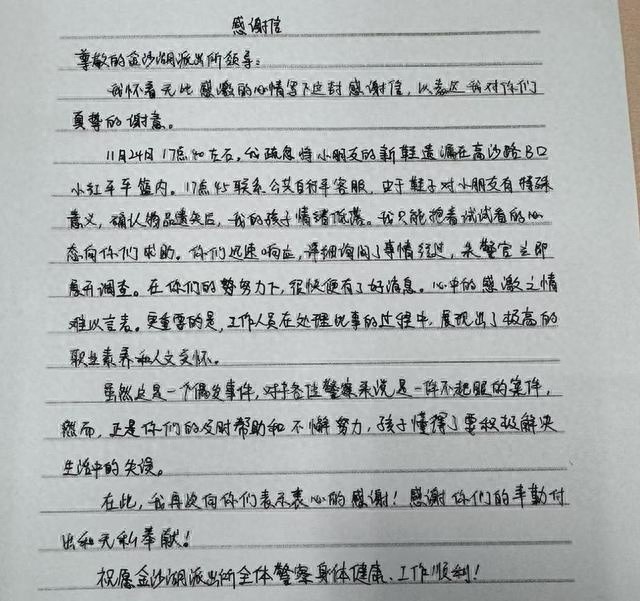 感谢信
尊敬的金沙湖派出所领导：
我怀着无比感激的心情写下这封感谢信，以表达我对你们
真挚的谢意。
11月24日17点40左右，我疏忽将小朋友的新鞋遗漏在高沙路BD
小红车车篮内。17点45联系公共自行车客服，由于鞋子对小朋友有特殊
意义，确认物品遗失后，我的孩子情绪低落。我只能抱着试试看的心
态向你们求助。你们迅速响应，详细询问了事情经过，朱警官立即
展开调查。在你们的努力下，很快便有了好消息。心中的感激之情
难以言表。更重要的是，工作人员在处理此事的过程中，展现出了极高的
职业素养和人文关怀。
虽然这是一个偶发事件，对于各位警察来说是一件不起眼的案件，
然而，正是你们的及时帮助和不懈努力，孩子懂得了要积极解决
生活中的失误。
在此，我再次向你们表示衷心的感谢！感谢你们的辛勤付
出和无私奉献！
祝愿金沙湖派出所全体警察身体健康、工作顺利！